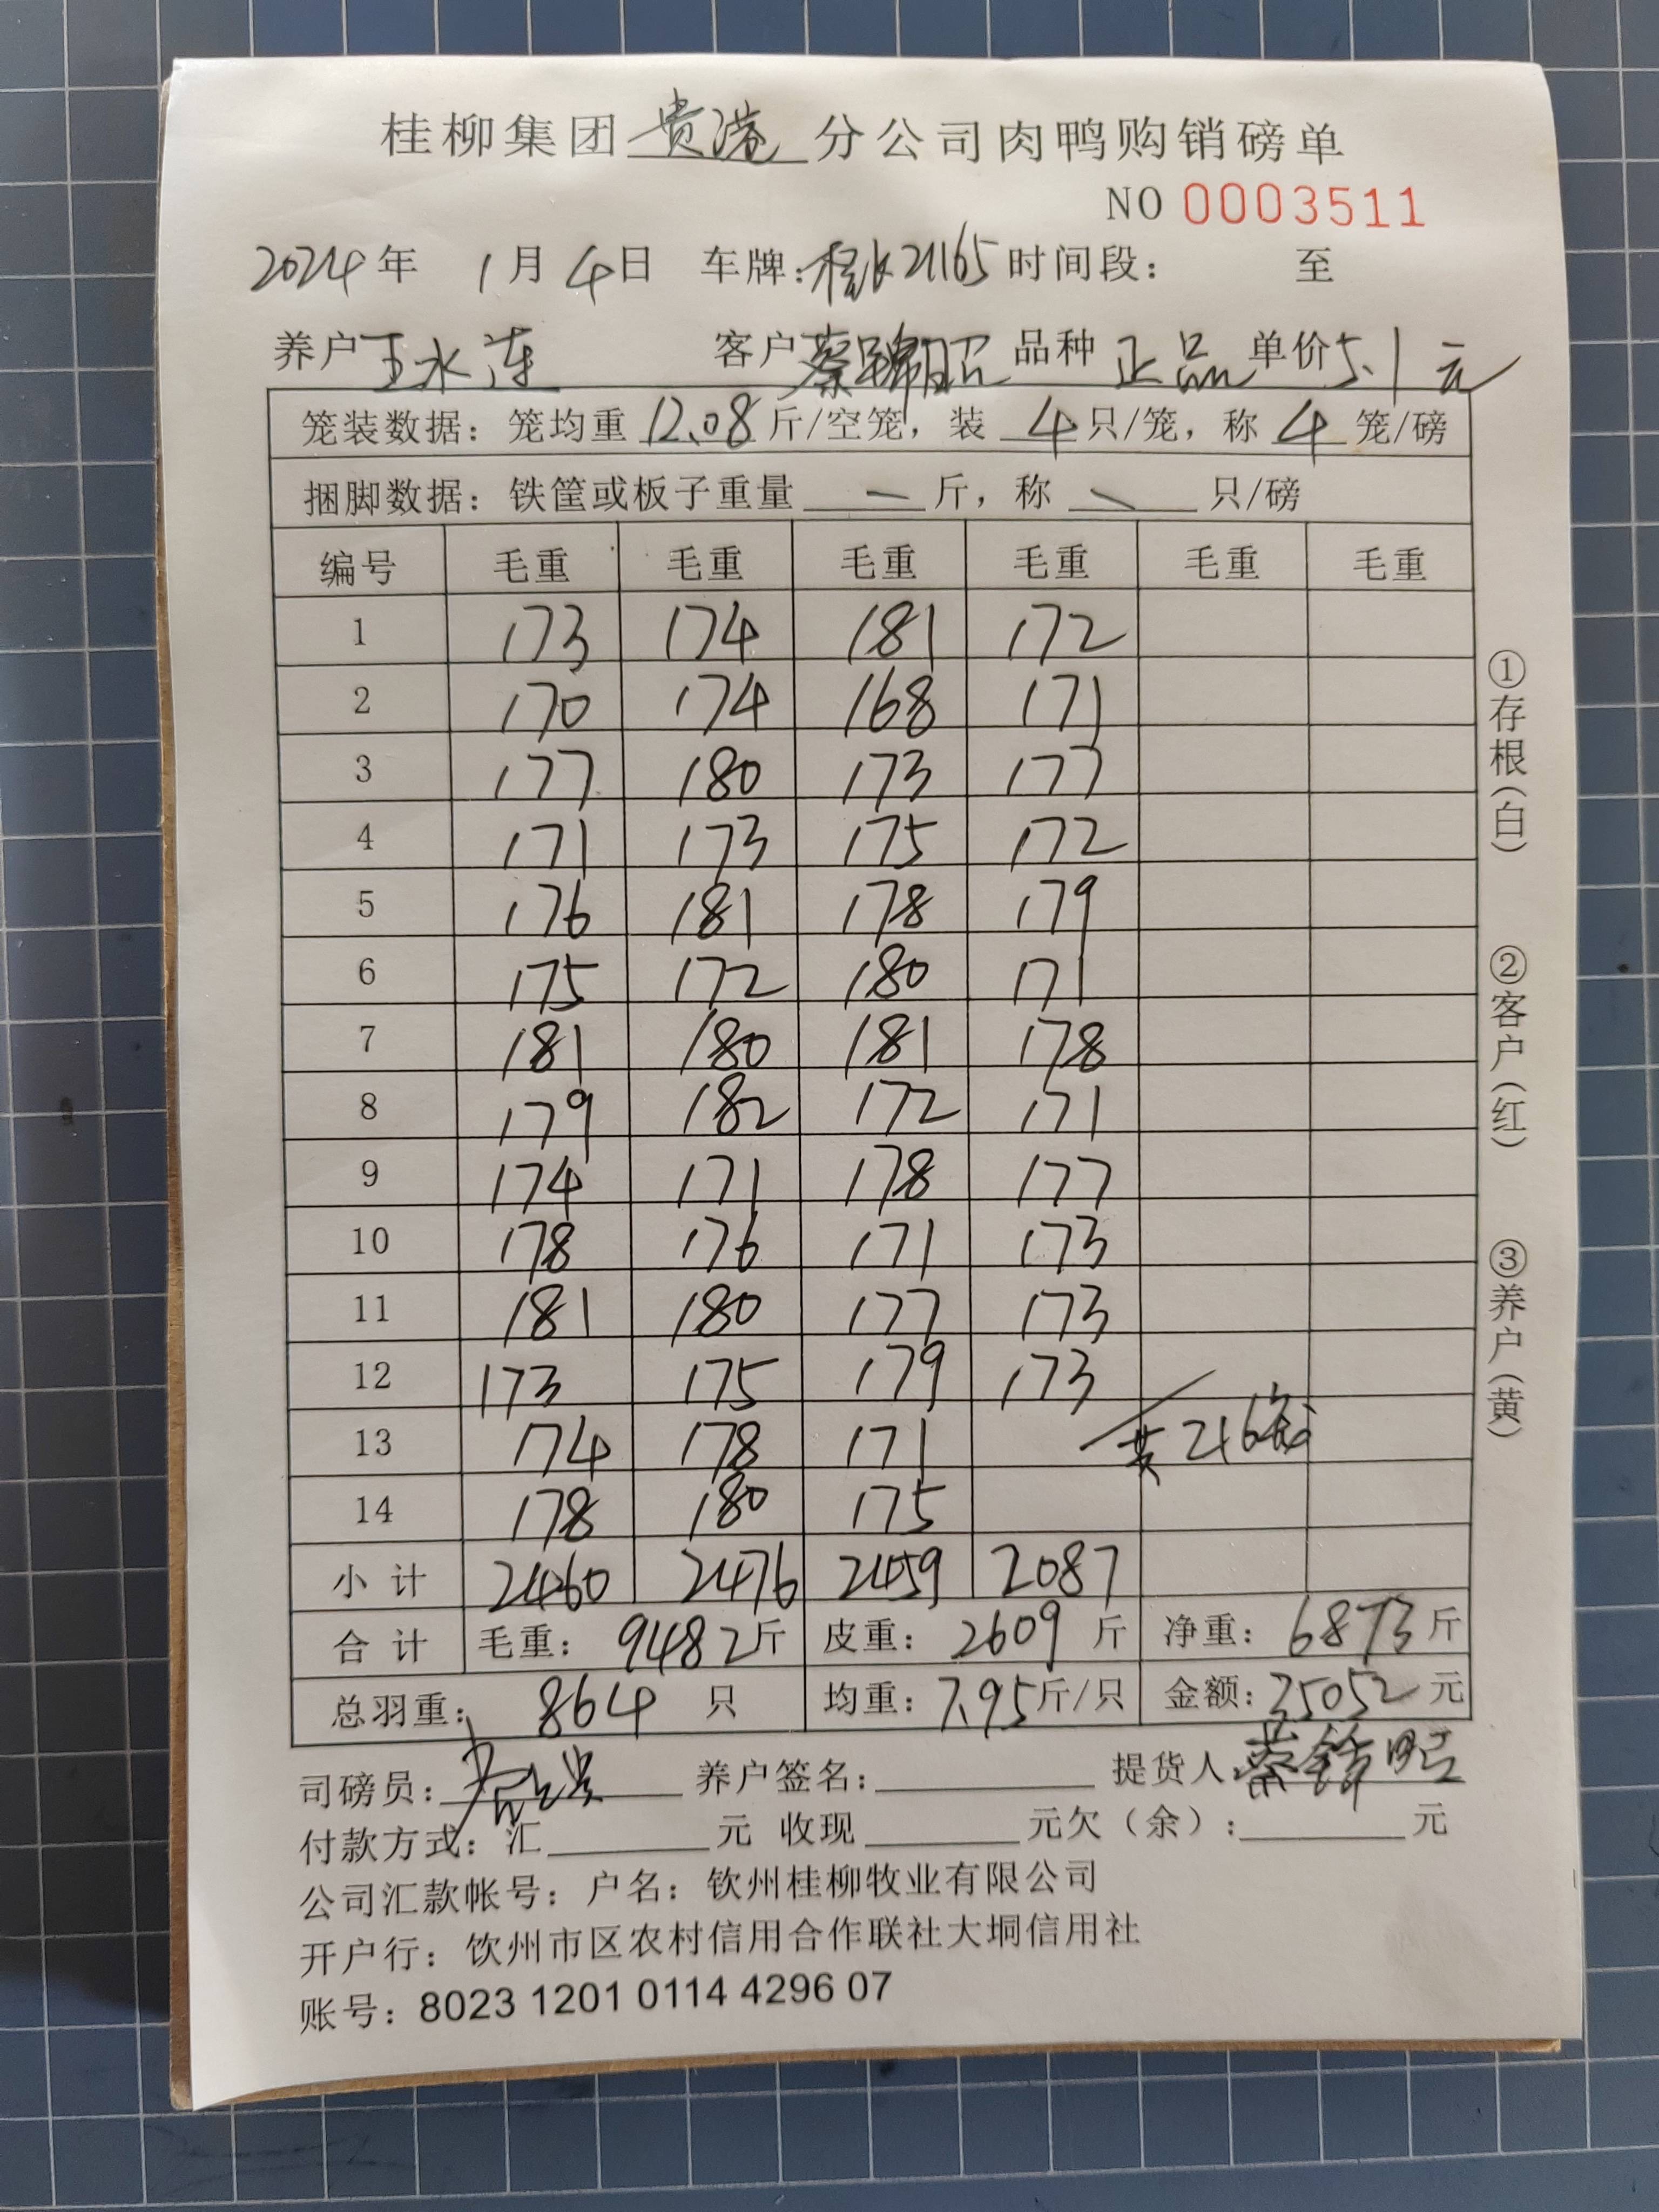 桂柳集团贵港分公司肉鸭购销磅单
NO 0003511
2024年 1月4日 车牌:桂K21165 时间段: 至
养户王水连 客户蔡锦昭 品种 正品 单价5.1元
笼装数据:笼均重 12.08 斤/空笼,装 4 只/笼,称 4 笼/磅
捆脚数据:铁筐或板子重量 — 斤,称 \ 只/磅
编号 毛重 毛重 毛重 毛重 毛重 毛重
1 173 174 181 172
2 170 174 168 171
3 177 180 173 177
4 171 173 175 172
5 176 181 178 179
6 175 172 180 171
7 181 180 181 178
8 179 182 172 171
9 174 171 178 177
10 178 176 171 173
11 181 180 177 173
12 173 175 179 173
13 174 178 171 共216
14 178 180 175
小计 2460 2476 2459 2087
合计 毛重: 9482斤 皮重: 2609 斤 净重: 6873斤
总羽重: 864 只 均重: 7.95斤/只 金额: 35052元
司磅员: 养户签名: 提货人蔡锦昭
付款方式:汇 元 收现 元欠(余): 元
公司汇款帐号:户名:钦州桂柳牧业有限公司
开户行:钦州市区农村信用合作联社大垌信用社
账号:8023 1201 0114 4296 07
①存根(白)
②客户(红)
③养户(黄)